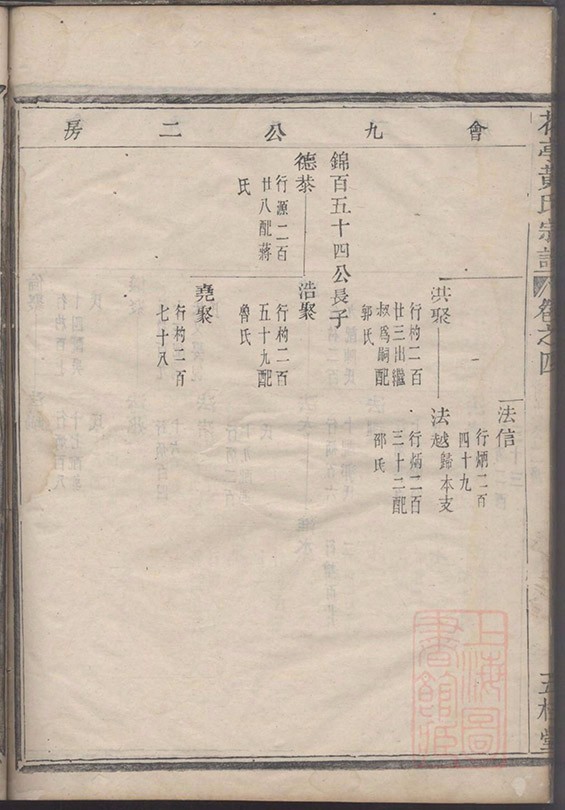 會九公二房
法信
行炳二百
四十九
洪聚
行枃二百
廿三出繼
叔爲嗣配
郭氏
法越歸本支
行炳二百
三十二配
邵氏
錦百五十四公長子
德恭
行源二百
廿八配蔣
氏
浩聚
行枃二百
五十九配
魯氏
堯聚
行枃二百
七十八
黃氏宗譜
卷之四
上海圖
書館